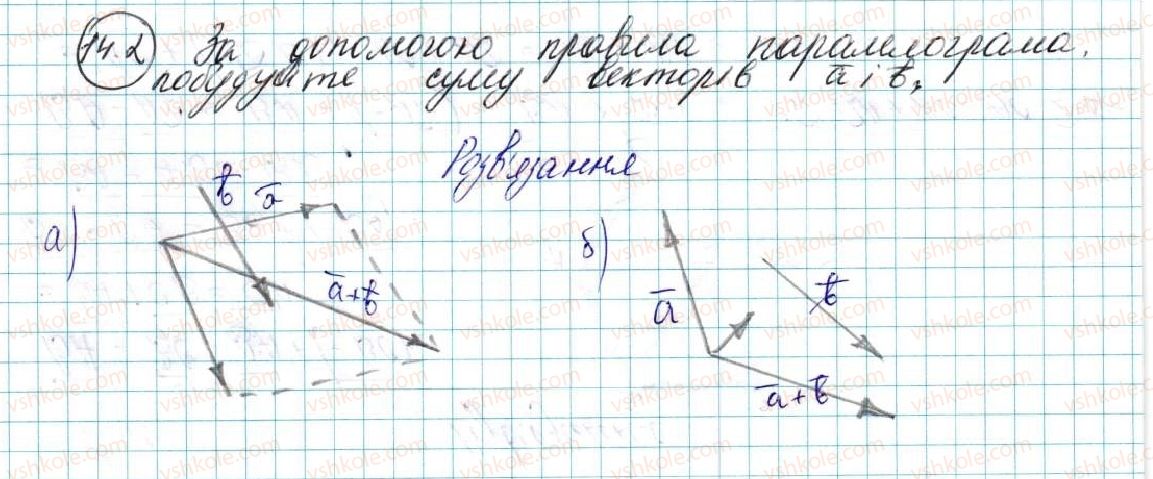 14.2 За допомогою правила паралелограма.
побудуйте суму векторів a̅ і b̅.
Розв'язання
а) b̅ a̅ a̅+b̅
б) a̅ b̅ a̅+b̅
vshkole.com